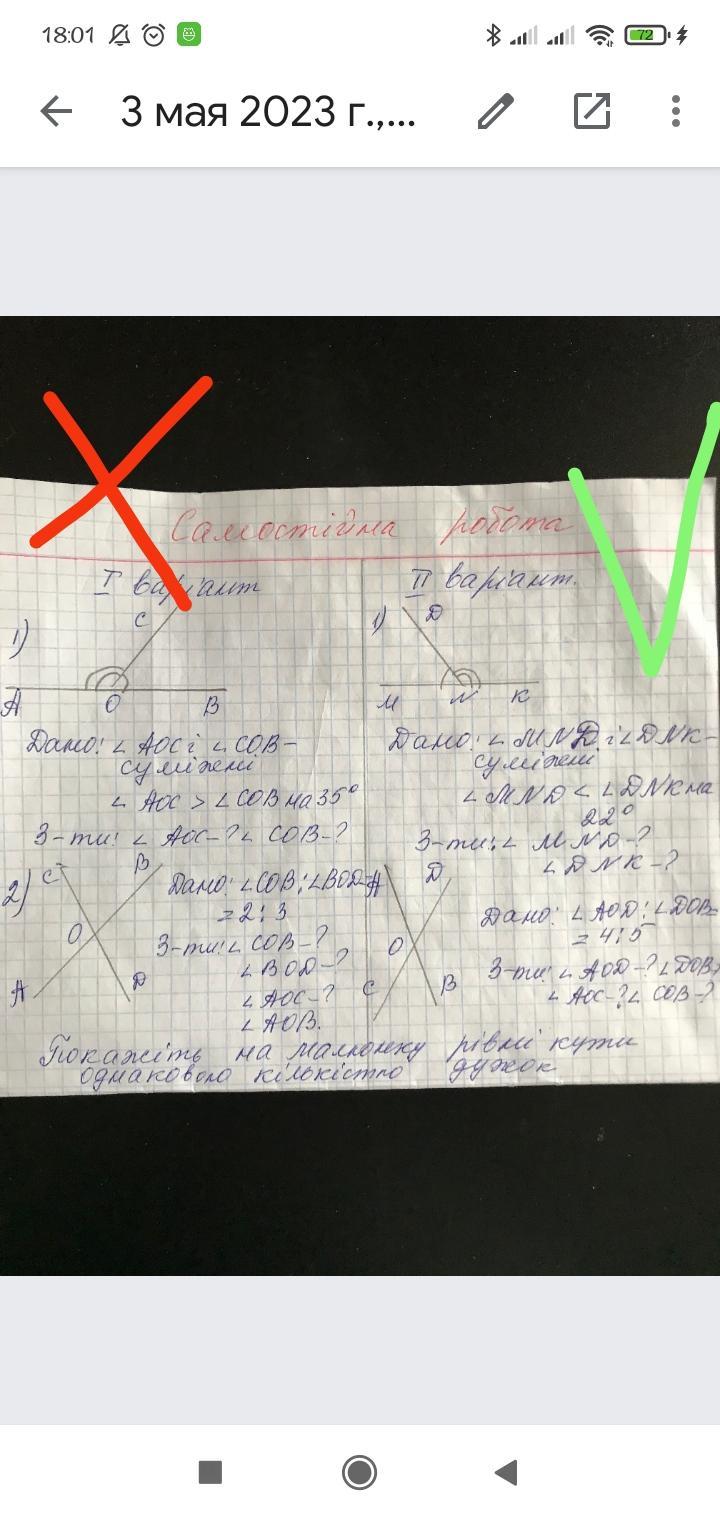 18:01
72
3 мая 2023 г.,...
Самостійна робота
I варіант
1)
C
A O B
Дано: ∠ AOC і ∠ COB -
суміжні
∠ AOC > ∠ COB на 35°
З-ти: ∠ AOC - ? ∠ COB - ?
2)
C B
O
A D
Дано: ∠COB : ∠BOD =
= 2 : 3
З-ти: ∠ COB - ?
∠ BOD - ?
∠ AOC - ?
∠ AOB.
II варіант.
1)
D
M N K
Дано: ∠ MND і ∠ DNK -
суміжні
∠ MND < ∠ DNK на
22°
З-ти: ∠ MND - ?
∠ DNK - ?
A D
O
C B
Дано: ∠ AOD : ∠ DOB =
= 4 : 5
З-ти: ∠ AOD - ? ∠ DOB -
∠ AOC - ? ∠ COB - ?
Покажіть на малюнку рівні кути
однаковою кількістю дужок